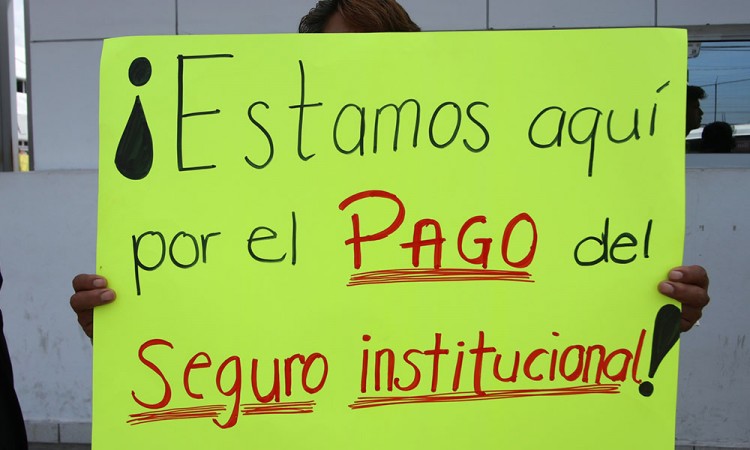 ¡Estamos aquí
por el PAGO del
Seguro institucional!